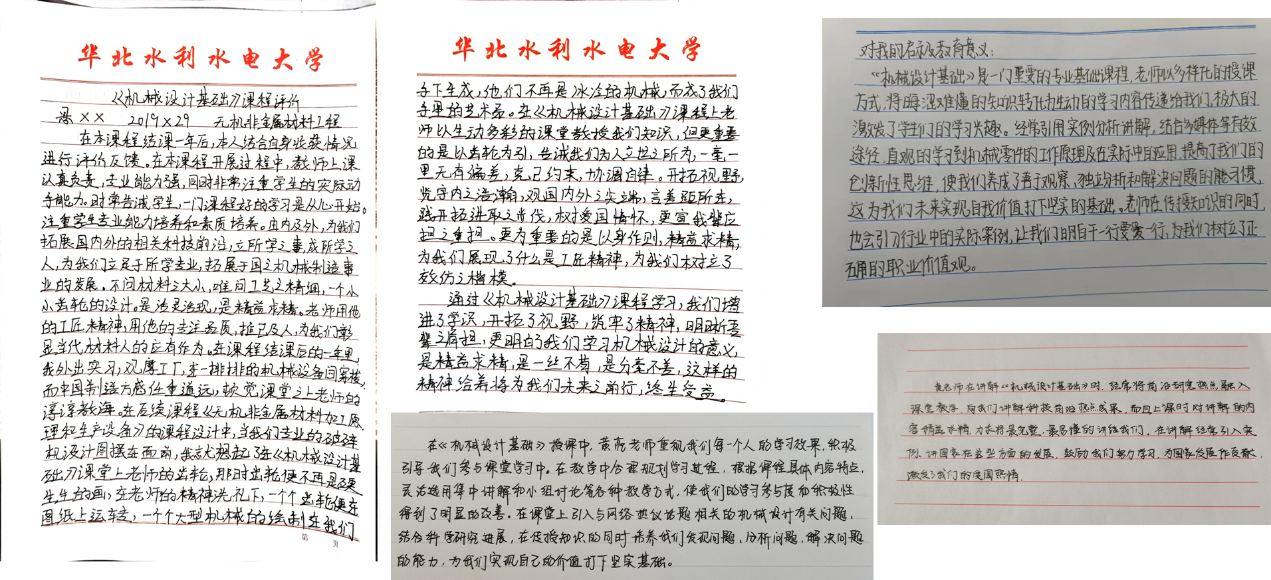 华北水利水电大学
《机械设计基础》课程评价
××  2019×29  无机非金属材料工程
在本课程结课一年后,本人结合自身收获情况
进行评价反馈。在本课程开展过程中,教师上课
认真负责,专业能力强,同时非常注重学生的实际动
手能力。时常告诫学生,一门课程好的学习是从心开始。
注重学生专业能力培养和素质培养。由内及外,为我们
拓展国内外的相关科技前沿,立所学之事,成所学之
人,为我们立足于所学专业,拓展于国之机械制造事
业的发展。不问材料之大小,唯问工艺之精细,一个小
小齿轮的设计。是活灵活现,是精益求精。老师用他
的工匠精神,用他的专注品质。推己及人,为我们彰
显当代材料人的应有作为。在课程结课后的一年里,
我外出实习,观摩工厂,在一排排的机械设备间穿梭,
而中国制造方感任重道远,顿觉课堂之上老师的
谆谆教诲。在后续课程《无机非金属材料加工原
理和生产设备》的课程设计中,当我们专业的破碎
机设计图摆在面前,我忽才想起了在《机械设计基
础》课堂上老师的齿轮,那时齿轮便不再是硬
生生的画,在老师的精神洗礼下,一个个齿轮便在
图纸上运转,一个个大型机械的绘制在我们
第  页
华北水利水电大学
手下生成,他们不再是冰冷的机械,而成了我们
手里的艺术品。在《机械设计基础》课程上老
师以生动多彩的课堂教授我们知识,但更重要
的是以齿轮为引,告诫我们为人立世之所为,一毫一
厘无有偏差,克己约束,协调自律。开拓视野,
览宇内之浩瀚,观国内外之尖端,言差距所在,
践开拓进取之步伐,树爱国情怀,更宣我辈应
担之重担。更为重要的是以身作则,精益求精,
为我们展现了什么是工匠精神,为我们树立了
效仿之楷模。
通过《机械设计基础》课程学习,我们增
进了学识,开拓了视野,筑牢了精神,明晰吾
辈之肩担,更明白了我们学习机械设计的意义,
是精益求精,是一丝不苟,是分毫不差,这样的
精神给养将为我们未来之前行,终生受益。
在《机械设计基础》授课中,黄亮老师重视我们每个人的学习效果,积极
引导我们参与课堂学习中。在教学中合理规划学习进程,根据课程具体内容特点,
灵活选用集中讲解和小组讨论等各种教学方式,使我们的学习参与度和积极性
得到了明显的改善。在课堂上引入与网络热议话题相关的机械设计有关问题,
结合科学研究进展,在传授知识的同时培养我们发现问题、分析问题、解决问题
的能力,为我们实现自己的价值打下坚实基础。
对我的启示及教育意义:
《机械设计基础》是一门重要的专业基础课程,老师以多样化的授课
方式,将晦涩难懂的知识转化为生动的学习内容传递给我们,极大的
激发了学生们的学习兴趣。经常引用实例分析讲解,结合多媒体等有效
途径,直观的学习到机械零件的工作原理及在实际中的应用,提高了我们的
创新性思维,使我们养成了善于观察、独立分析和解决问题的能习惯,
这为我们未来实现自我价值打下坚实的基础。老师在传授知识的同时,
也会引入行业中的实际案例,让我们明白干一行要爱一行,为我们树立了正
确的职业价值观。
黄老师在讲解《机械设计基础》时,经常将前沿研究热点融入
课堂教学,向我们讲解科技前沿热点成果,而且上课时对讲解的内
容精益求精,力求将最完整、最易懂的讲给我们。在讲解经常引入实
例,讲国家在这些方面的发展,鼓励我们努力学习,为国家发展作贡献,
激发了我们的爱国热情。